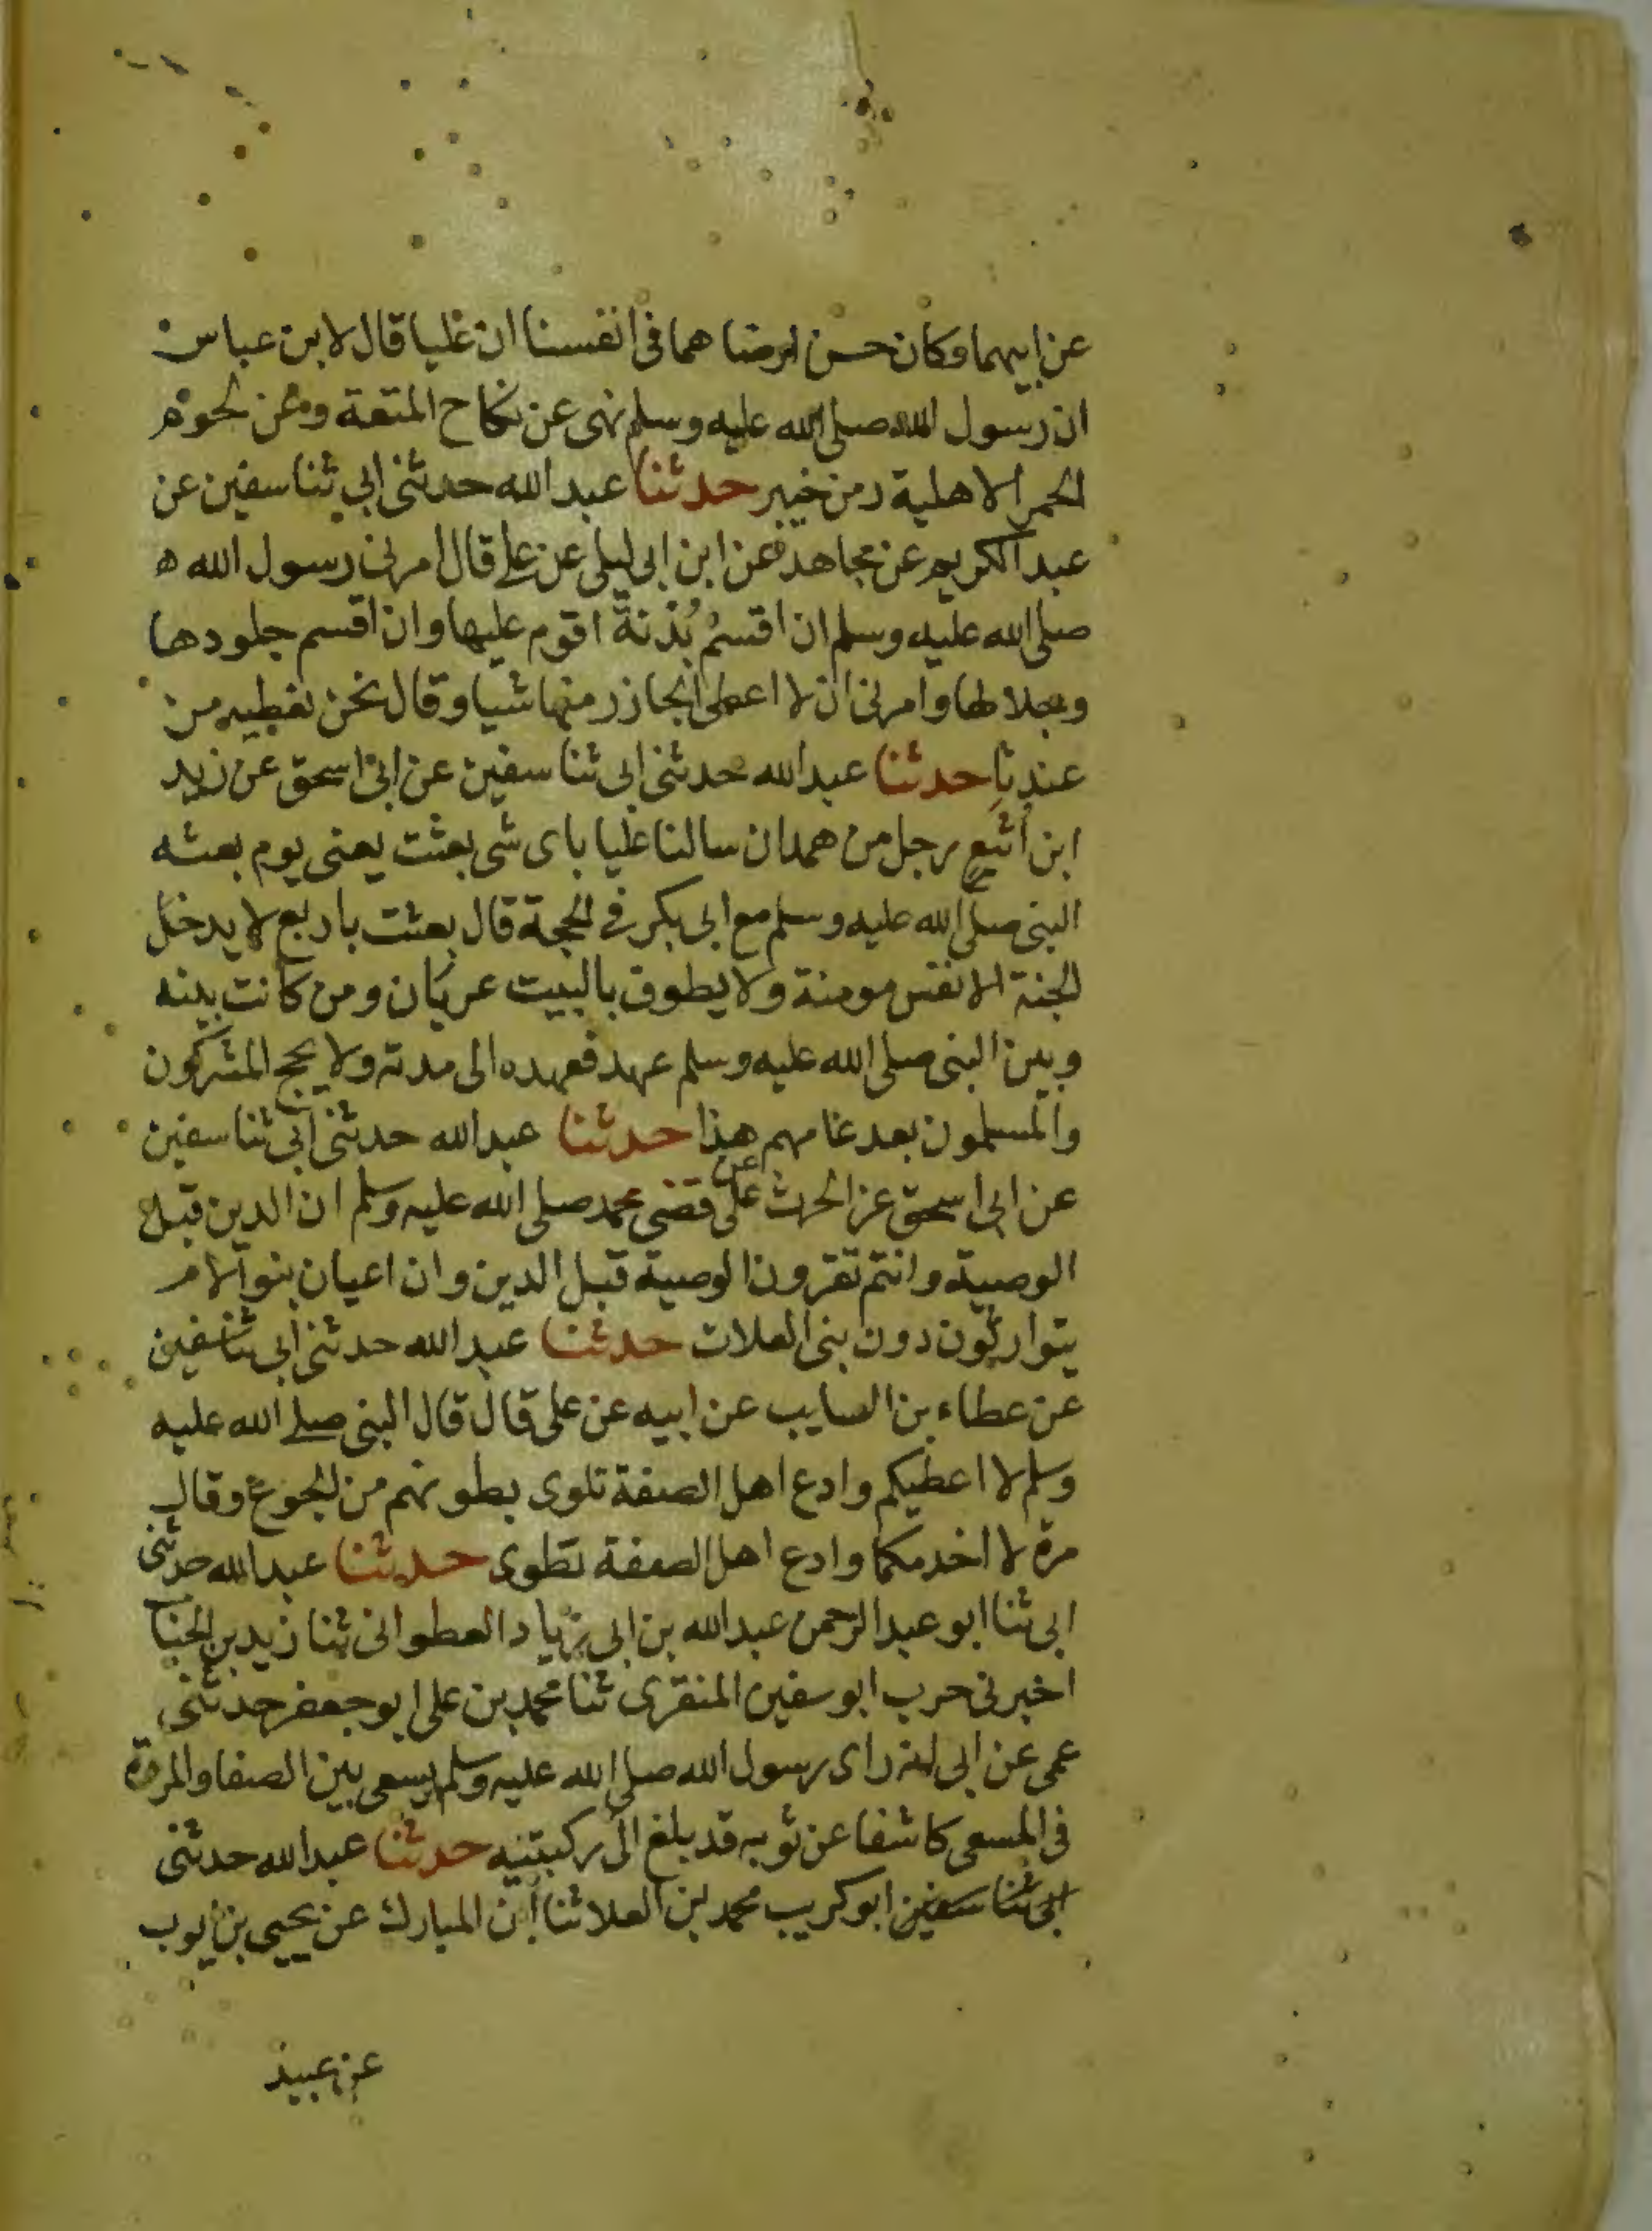 عن ابيهما وكان حسن ارضاهما في انفسنا ان عليا قال لابن عباس
ان رسول الله صلى الله عليه وسلم نهى عن نكاح المتعة وعن لحوم
الحمر الاهلية زمن خيبر حدثنا عبد الله حدثني ابي ثنا سفين عن
عبد الكريم عن مجاهد عن ابن ابي ليلى عن علي قال امرني رسول الله
صلى الله عليه وسلم ان اقسم بُدْنَة اقوم عليها وان اقسم جلودها
وجلالها وامرني ان لا اعطى الجازر منها شيا وقال نحن نعطيه من
عندنا حدثنا عبد الله حدثني ابي ثنا سفين عن ابي اسحق عن زيد
ابن اثيع رجل من همدان سالنا عليا باى شى بعثت يعني يوم بعثه
النبى صلى الله عليه وسلم مع ابى بكر في الحجة قال بعثت باربع لا يدخل
الجنة الا نفس مومنة ولا يطوف بالبيت عريان ومن كانت بينه
وبين النبى صلى الله عليه وسلم عهد فعهده الى مدته ولا يحج المشركون
والمسلمون بعد عامهم هذا حدثنا عبد الله حدثني ابي ثنا سفين
عن ابى اسحق عن الحرث عن على قضى محمد صلى الله عليه وسلم ان الدين قبل
الوصية وانتم تقرون الوصية قبل الدين وان اعيان بنو الام
يتوارثون دون بنى العلات حدثنا عبد الله حدثني ابي ثنا سفين
عن عطاء بن السايب عن ابيه عن على قال قال النبى صلى الله عليه
وسلم لا اعطيكم وادع اهل الصفة تلوى بطونهم من الجوع وقال
مرة لا اخدمكما وادع اهل الصفة تطوى حدثنا عبد الله حدثنى
ابى ثنا ابو عبد الرحمن عبد الله بن ابى زياد العطوانى ثنا زيد بن الحباب
اخبرنى حرب ابو سفين المنقرى ثنا محمد بن على ابو جعفر حدثنى
عمى عن ابى انه راى رسول الله صلى الله عليه وسلم يسعى بين الصفا والمروة
فى المسعى كاشفا عن ثوبه قد بلغ الى ركبتيه حدثنا عبد الله حدثنى
ابى ثنا سفين ابو كريب محمد بن العلا ثنا ابن المبارك عن يحيى بن ايوب
عن عبيد